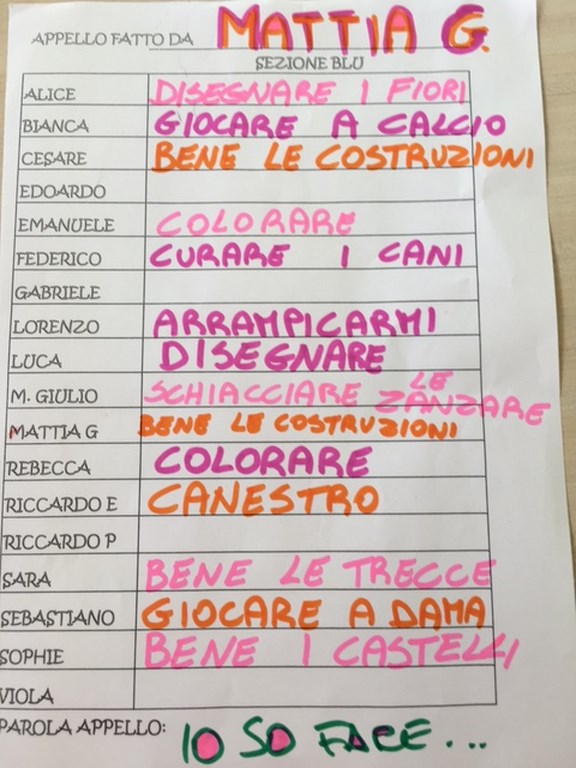 APPELLO FATTO DA MATTIA G.
SEZIONE BLU
ALICE DISEGNARE I FIORI
BIANCA GIOCARE A CALCIO
CESARE BENE LE COSTRUZIONI
EDOARDO
EMANUELE COLORARE
FEDERICO CURARE I CANI
GABRIELE
LORENZO ARRAMPICARMI
LUCA DISEGNARE
M. GIULIO SCHIACCIARE LE ZANZARE
MATTIA G BENE LE COSTRUZIONI
REBECCA COLORARE
RICCARDO E CANESTRO
RICCARDO P
SARA BENE LE TRECCE
SEBASTIANO GIOCARE A DAMA
SOPHIE BENE I CASTELLI
VIOLA
PAROLA APPELLO: IO SO FARE...